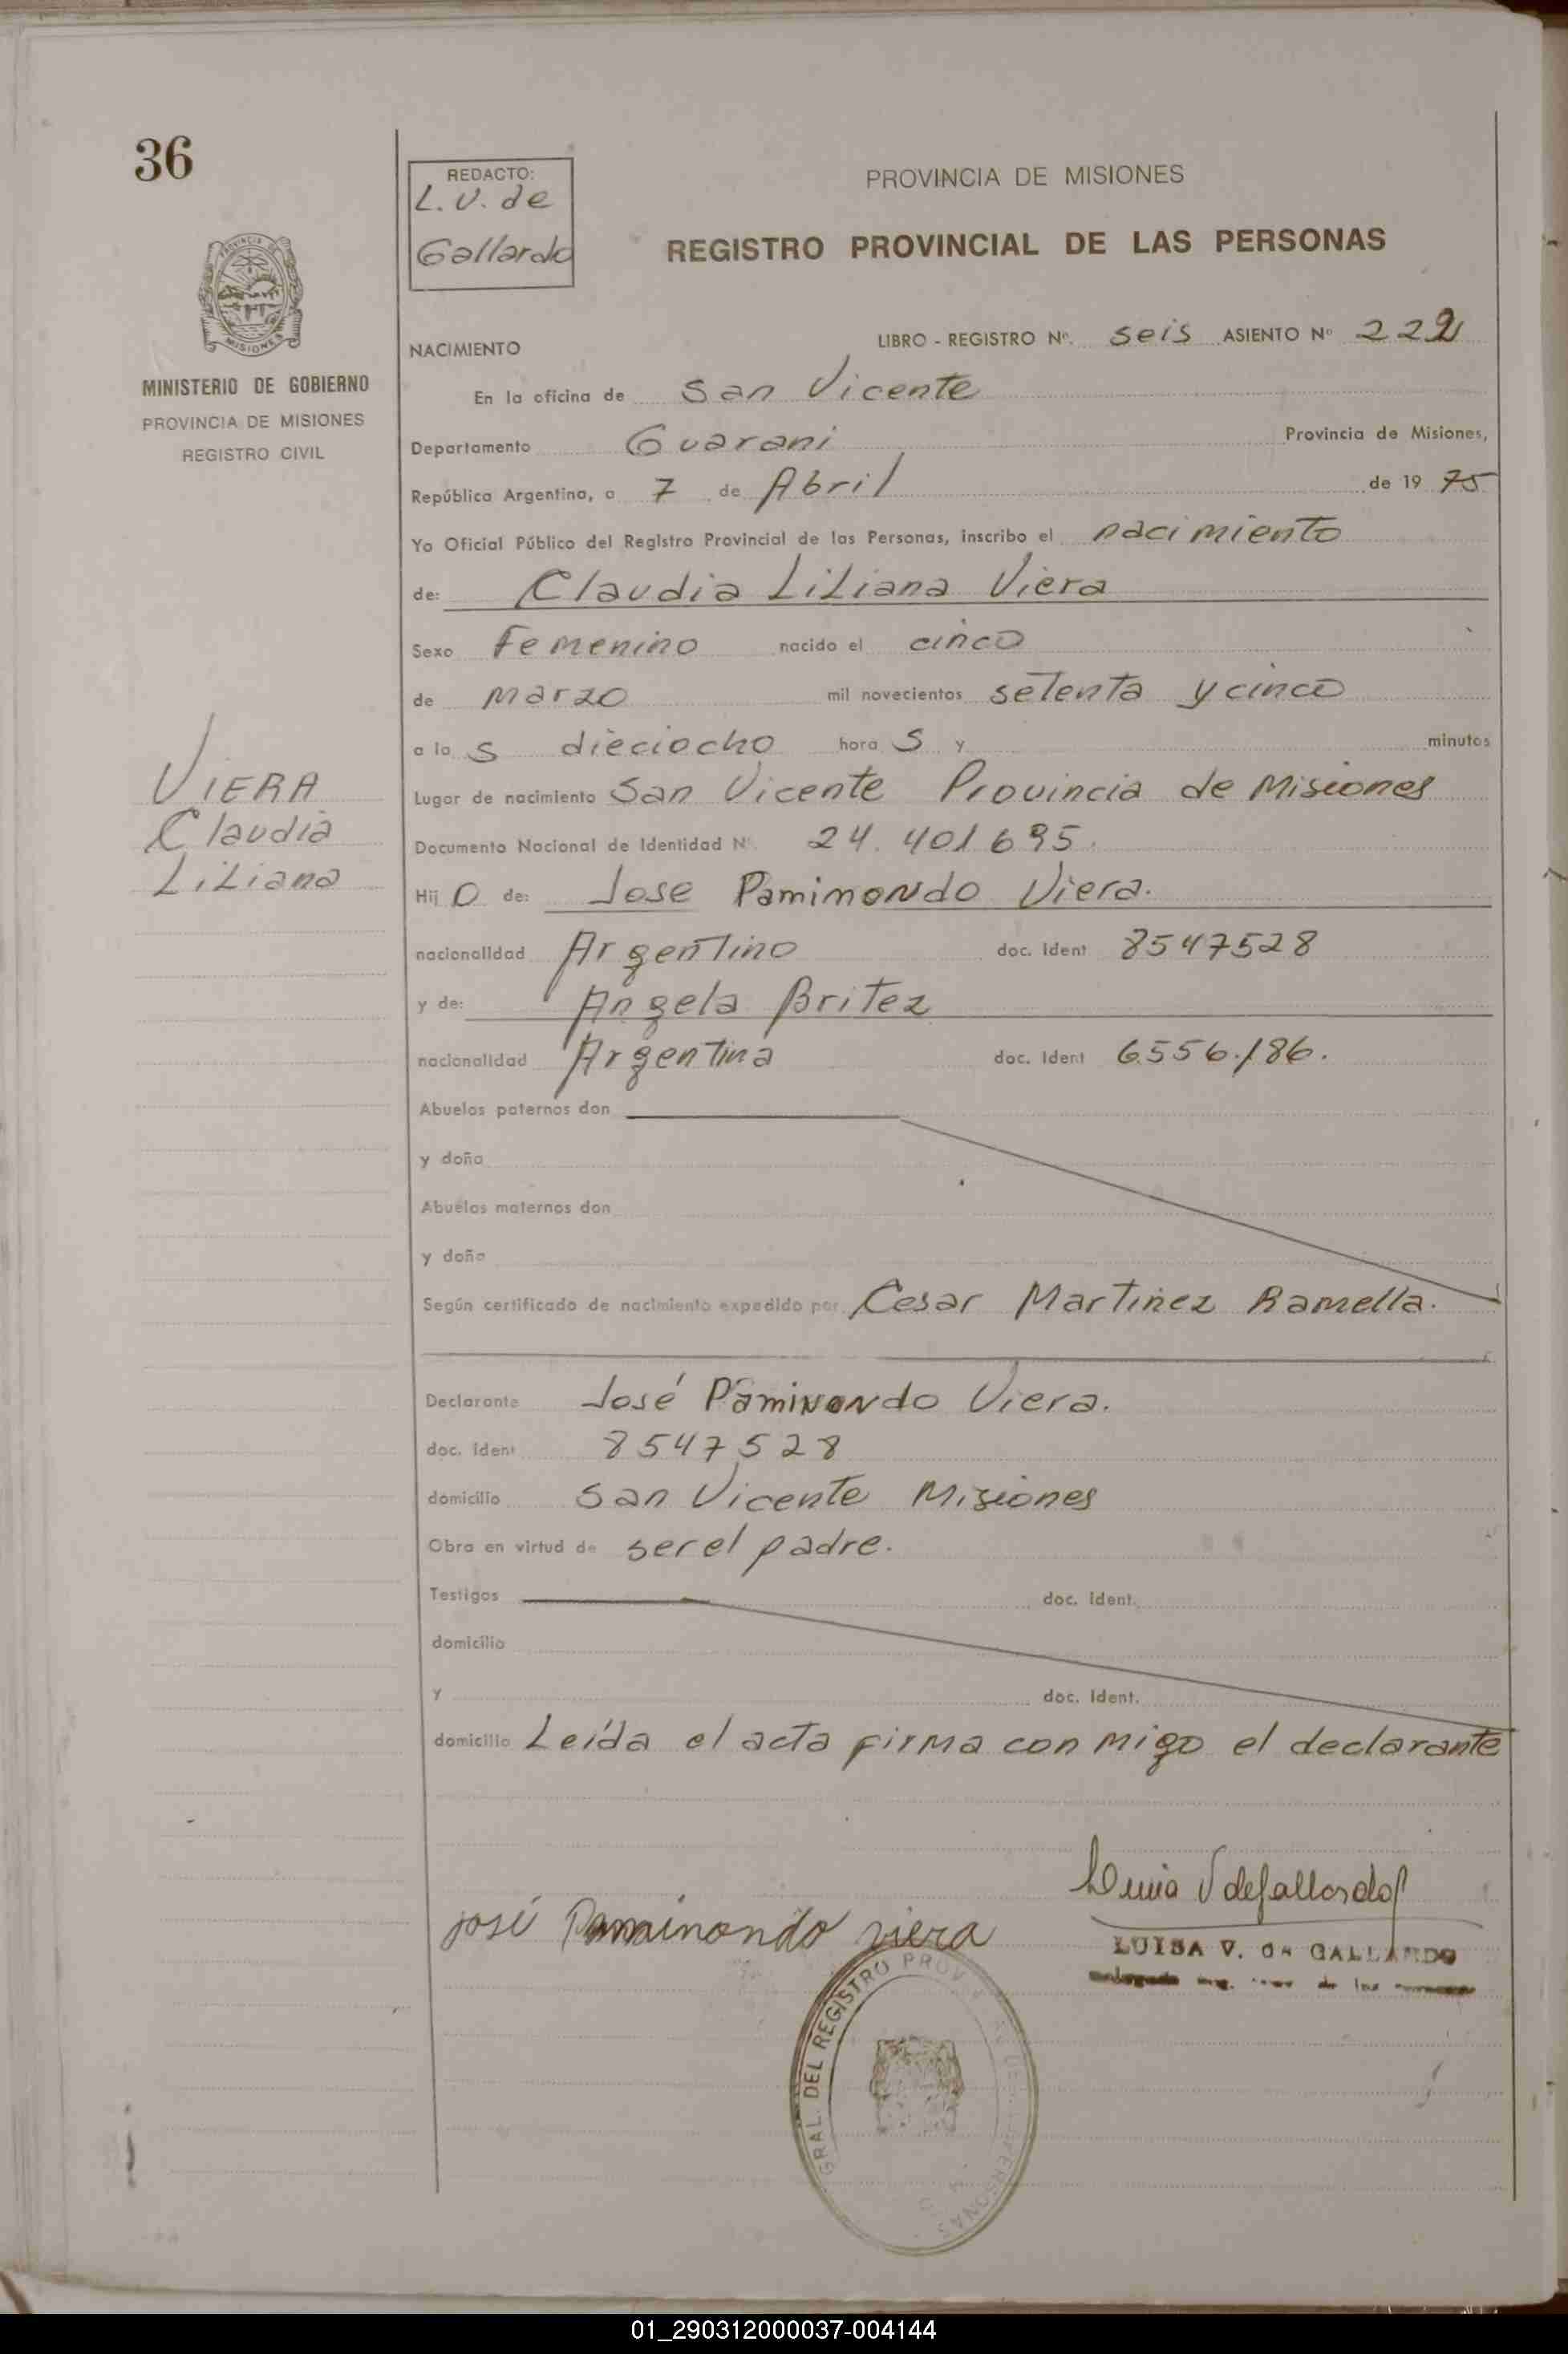 36
REDACTO:
L. V. de
Gallardo
PROVINCIA DE MISIONES
REGISTRO PROVINCIAL DE LAS PERSONAS
MISIONES
MINISTERIO DE GOBIERNO
PROVINCIA DE MISIONES
REGISTRO CIVIL
NACIMIENTO
LIBRO - REGISTRO Nº. seis ASIENTO Nº 222
En la oficina de San Vicente
Departamento Guarani Provincia de Misiones,
República Argentina, a 7 de Abril de 19 75
Yo Oficial Público del Registro Provincial de las Personas, inscribo el nacimiento
de: Claudia Liliana Viera
Sexo Femenino nacido el cinco
de marzo mil novecientos setenta y cinco
a la s dieciocho hora s y minutos
Lugar de nacimiento San Vicente Provincia de Misiones
Documento Nacional de Identidad Nº 24.401695.
Hij o de: Jose Pamimondo Viera.
nacionalidad Argentino doc. ident 8547528
y de: Angela Britez
nacionalidad Argentina doc. ident 6.556.186.
Abuelos paternos don
y doña
Abuelos maternos don
y doña
Según certificado de nacimiento expedido por Cesar Martinez Ramella.
Declarante José Paminondo Viera.
doc. ident 8547528
domicilio San Vicente Misiones
Obra en virtud de ser el padre.
Testigos doc. ident.
domicilio
y doc. ident.
domicilio Leída el acta firma con migo el declarante
VIERA
Claudia
Liliana
José Paminondo viera
Luisa V de Gallardo
LUISA V. de GALLARDO
GRAL. DEL REGISTRO PROV
PERSONAS
01_290312000037-004144